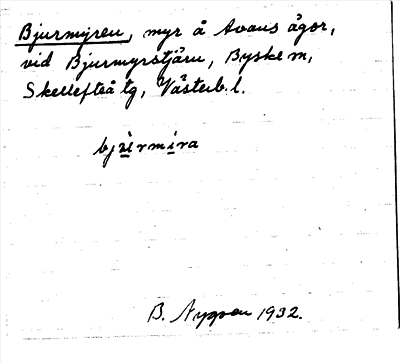 Bjurmyren, myr å Avans ägor,
vid Bjurmyrstjärn, Byske m,
Skellefteå tg, Västerb. l.
bjùrmíra
B. 1932.